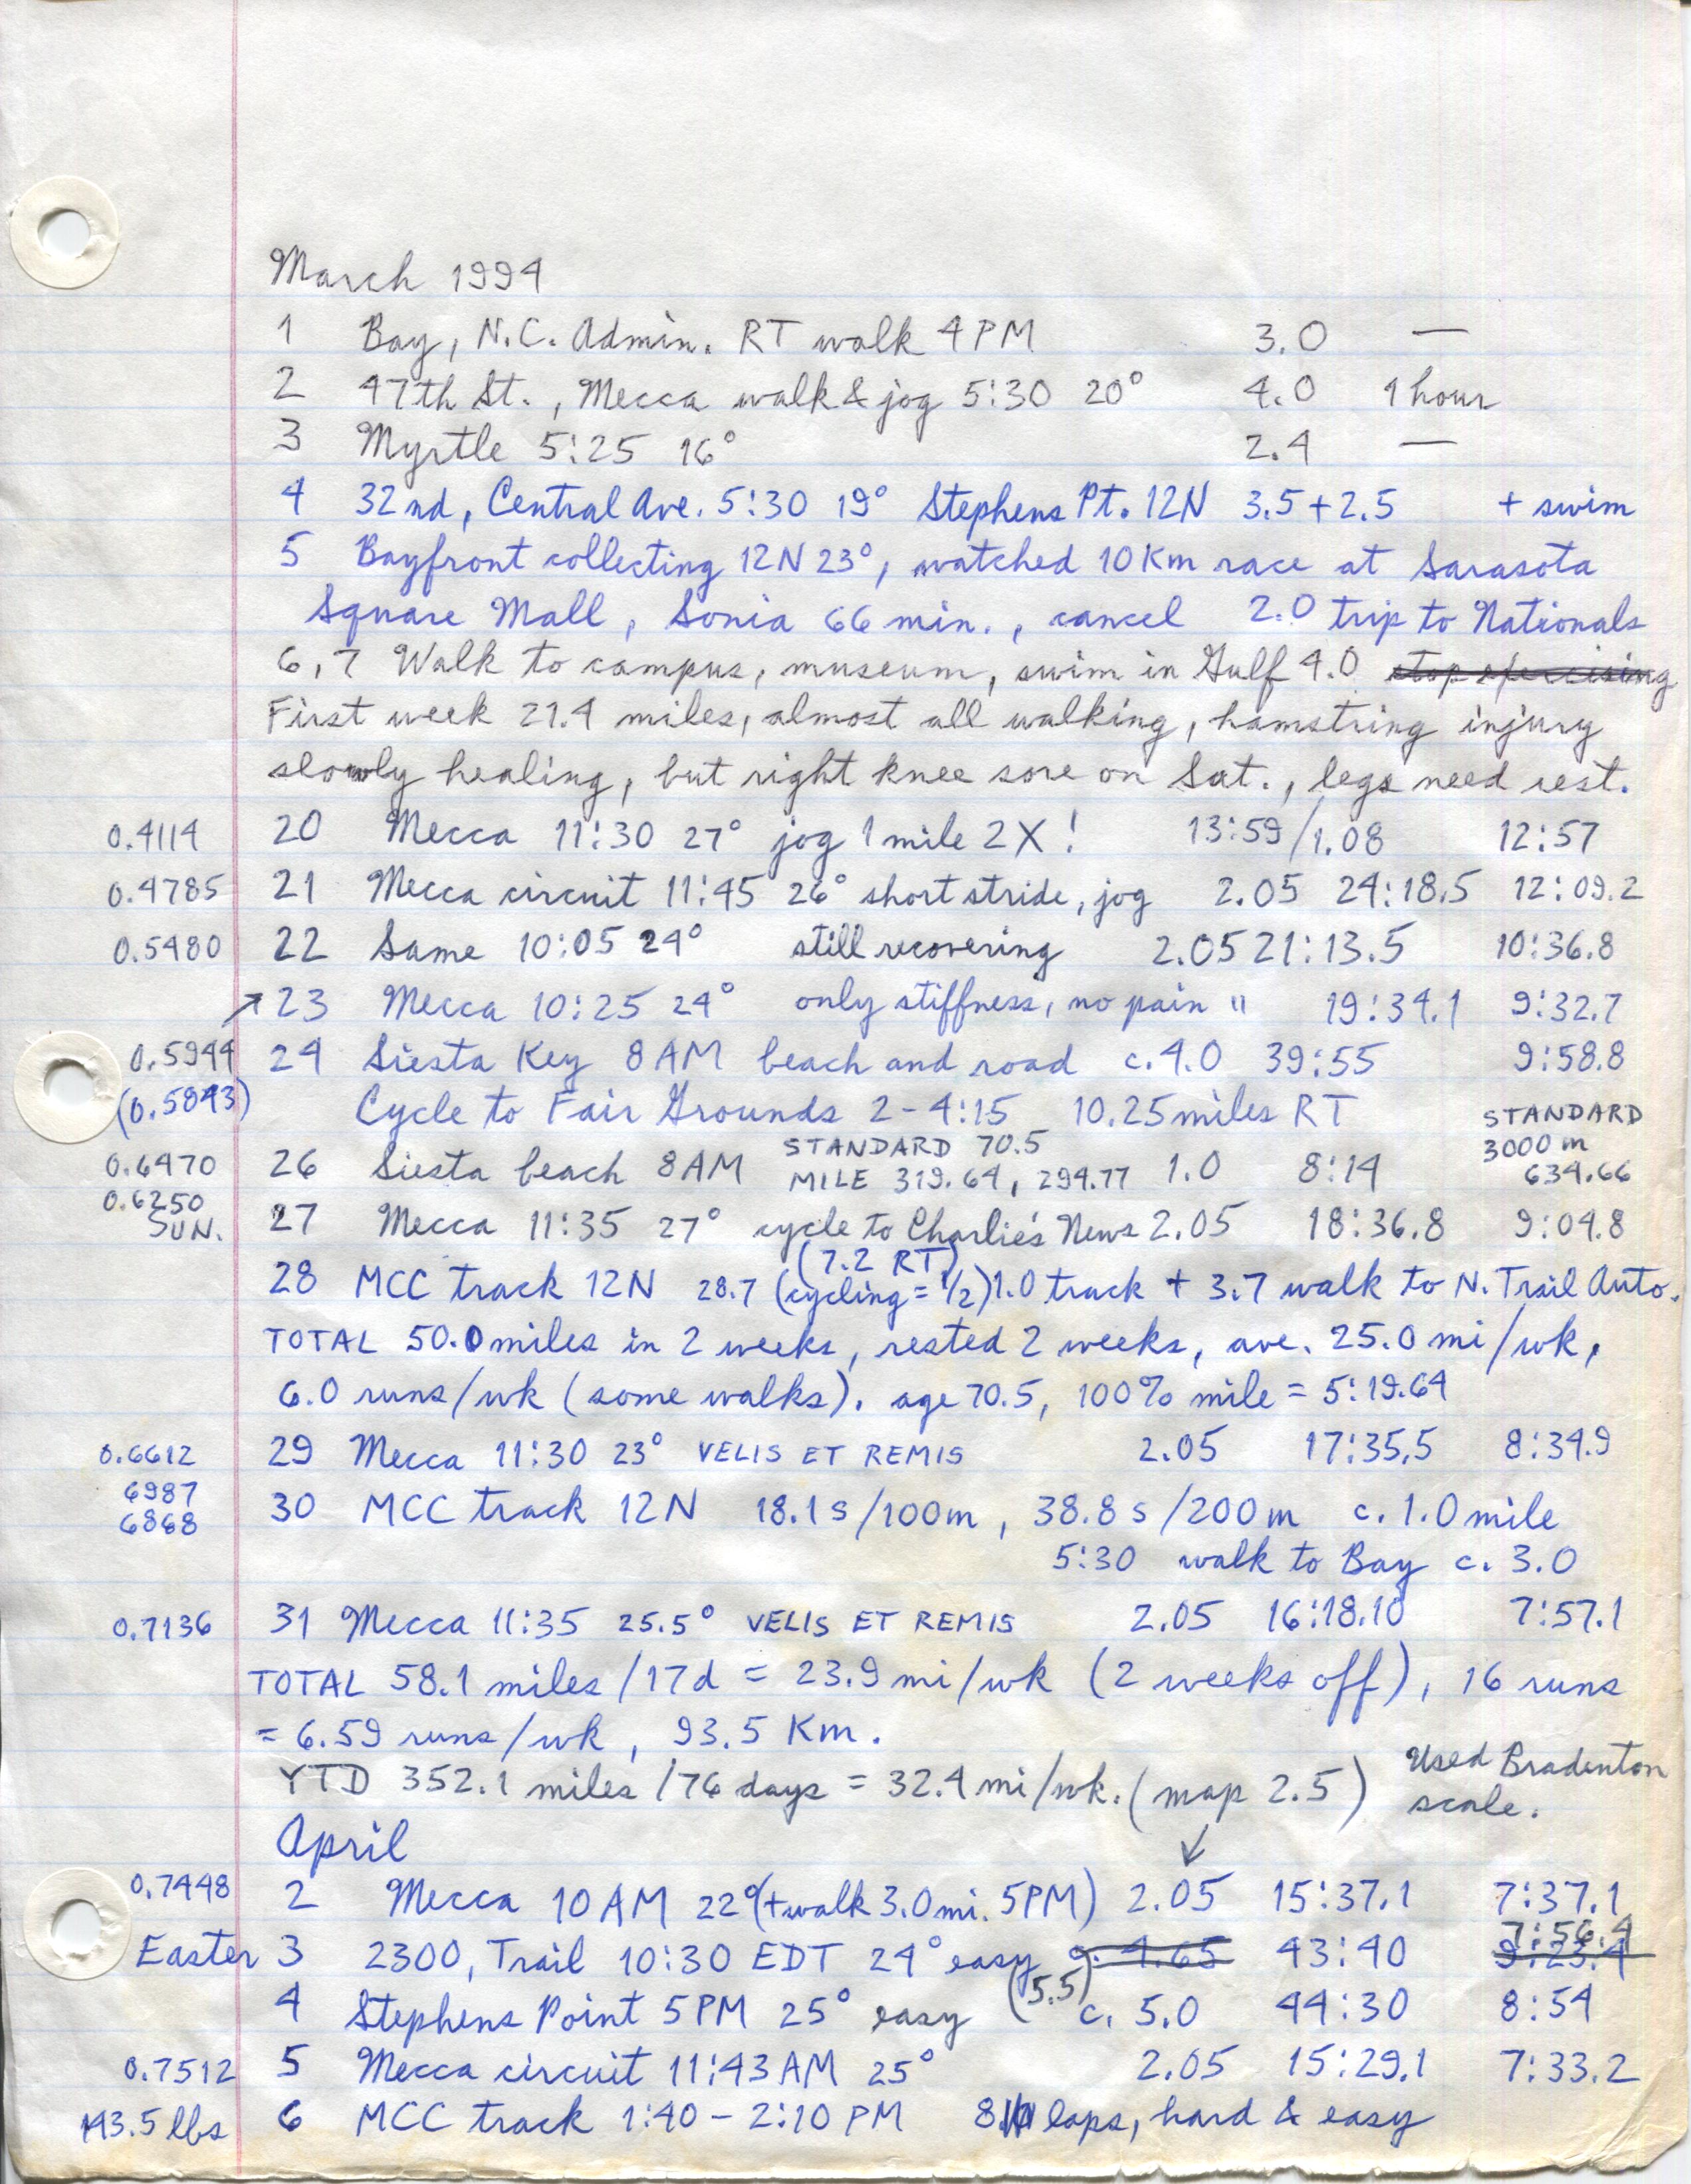 March 1994
1 Bay, N.C. Admin. RT walk 4 PM 3.0 —
2 47th St., Mecca walk & jog 5:30 20° 4.0 1 hour
3 Myrtle 5:25 16° 2.4 —
4 32nd, Central Ave. 5:30 19° Stephens Pt. 12N 3.5+2.5 + swim
5 Bayfront collecting 12N 23°, watched 10 Km race at Sarasota
Square Mall, Sonia 66 min., cancel 2.0 trip to Nationals
6,7 Walk to campus, museum, swim in Gulf 4.0 stop exercising
First week 21.4 miles, almost all walking, hamstring injury
slowly healing, but right knee sore on Sat., legs need rest.
0.4114 20 Mecca 11:30 27° jog 1 mile 2X! 13:59/1.08 12:57
0.4785 21 Mecca circuit 11:45 26° short stride, jog 2.05 24:18.5 12:09.2
0.5480 22 Same 10:05 24° still recovering 2.05 21:13.5 10:36.8
↗ 23 Mecca 10:25 24° only stiffness, no pain " 19:34.1 9:32.7
0.5944 24 Siesta Key 8 AM beach and road c. 4.0 39:55 9:58.8
(0.5843) Cycle to Fair Grounds 2-4:15 10.25 miles RT STANDARD
0.6470 26 Siesta beach 8 AM STANDARD 70.5 MILE 319.64, 294.77 1.0 8:14 3000 m 634.66
0.6250
SUN. 27 Mecca 11:35 27° cycle to Charlie's News 2.05 18:36.8 9:04.8
(7.2 RT)
28 MCC track 12N 28.7 (cycling = 1/2) 1.0 track + 3.7 walk to N. Trail Auto.
TOTAL 50.0 miles in 2 weeks, rested 2 weeks, ave. 25.0 mi/wk,
6.0 runs/wk (some walks). age 70.5, 100% mile = 5:19.64
0.6612 29 Mecca 11:30 23° VELIS ET REMIS 2.05 17:35.5 8:34.9
6987
6868 30 MCC track 12N 18.1 s/100m, 38.8 s/200 m c. 1.0 mile
5:30 walk to Bay c. 3.0
0.7136 31 Mecca 11:35 25.5° VELIS ET REMIS 2.05 16:18.10 7:57.1
TOTAL 58.1 miles/17d = 23.9 mi/wk (2 weeks off), 16 runs
= 6.59 runs/wk, 93.5 Km.
YTD 352.1 miles/76 days = 32.4 mi/wk. (map 2.5) Used Bradenton scale.
April
0.7448 2 Mecca 10 AM 22° (+walk 3.0 mi. 5PM) 2.05 15:37.1 7:37.1
7:56.4
Easter 3 2300, Trail 10:30 EDT 24° easy c. 4.65 43:40 9:23.4
(5.5)
4 Stephens Point 5 PM 25° easy c. 5.0 44:30 8:54
0.7512 5 Mecca circuit 11:43 AM 25° 2.05 15:29.1 7:33.2
143.5 lbs 6 MCC track 1:40 - 2:10 PM 8 laps, hard & easy